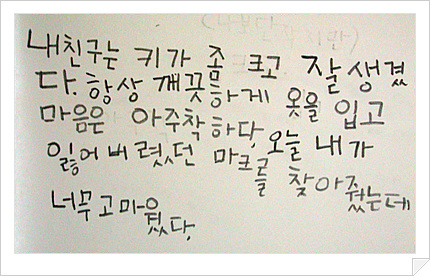 내친구는 키가 좀 크고 잘 생겼
다. 항상 깨끗하게 옷을 입고
마음은 아주착하다. 오늘 내가
잃어버렸던 마크를 찾아줬는데
너무고마웠다.